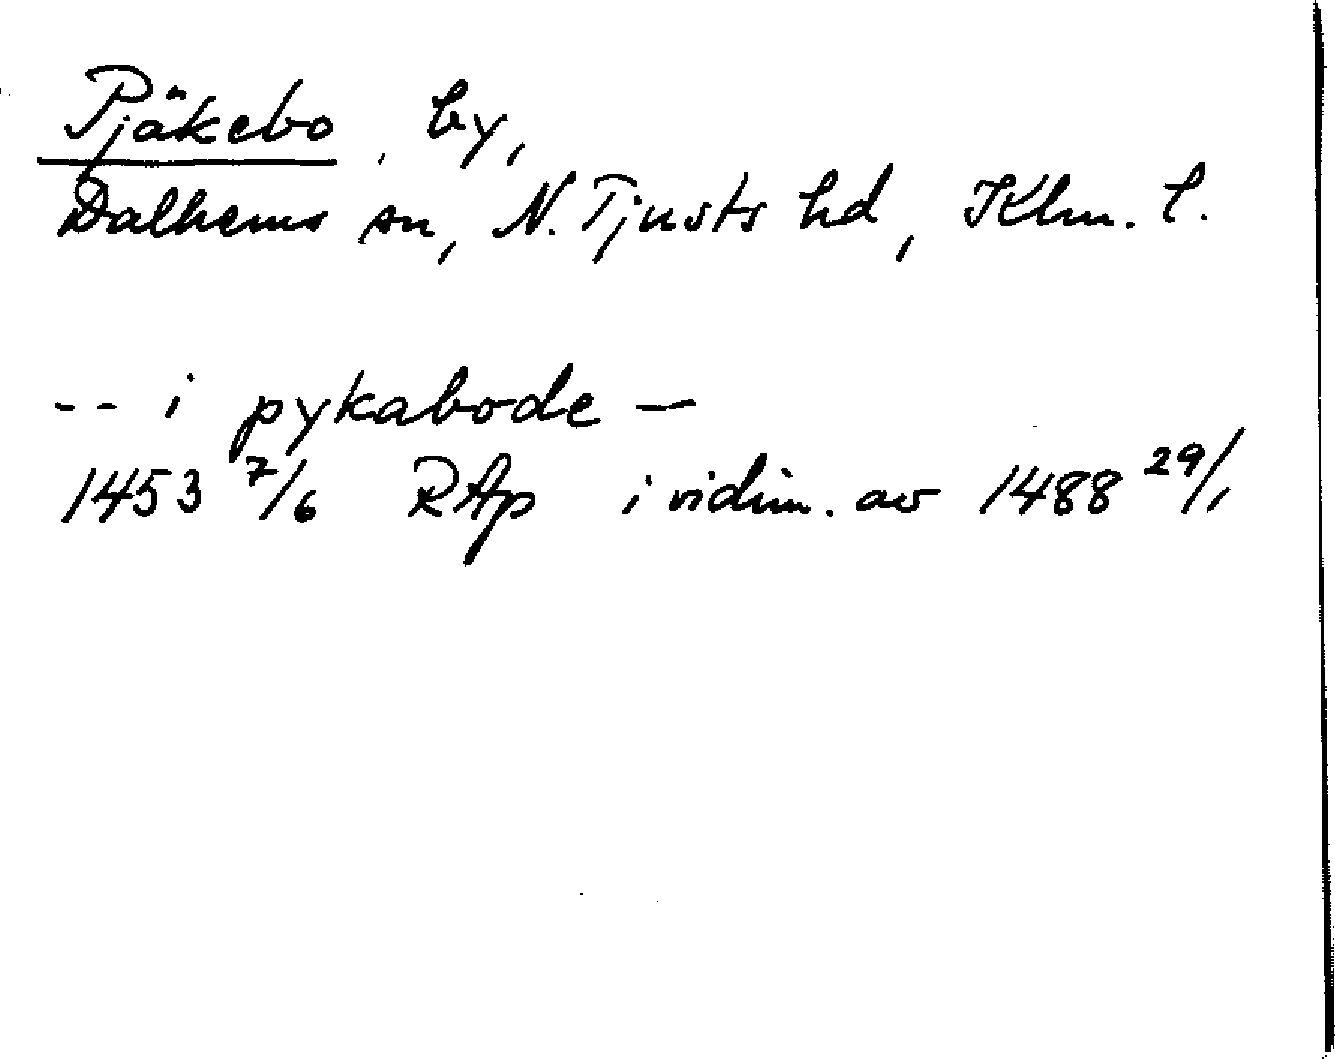 Pjäkebo, by,
Dalhems sn, N. Tjusts hd, Klm. l.
-- i pykabode —
1453 7/6 RAp i vidim. av 1488 29/1